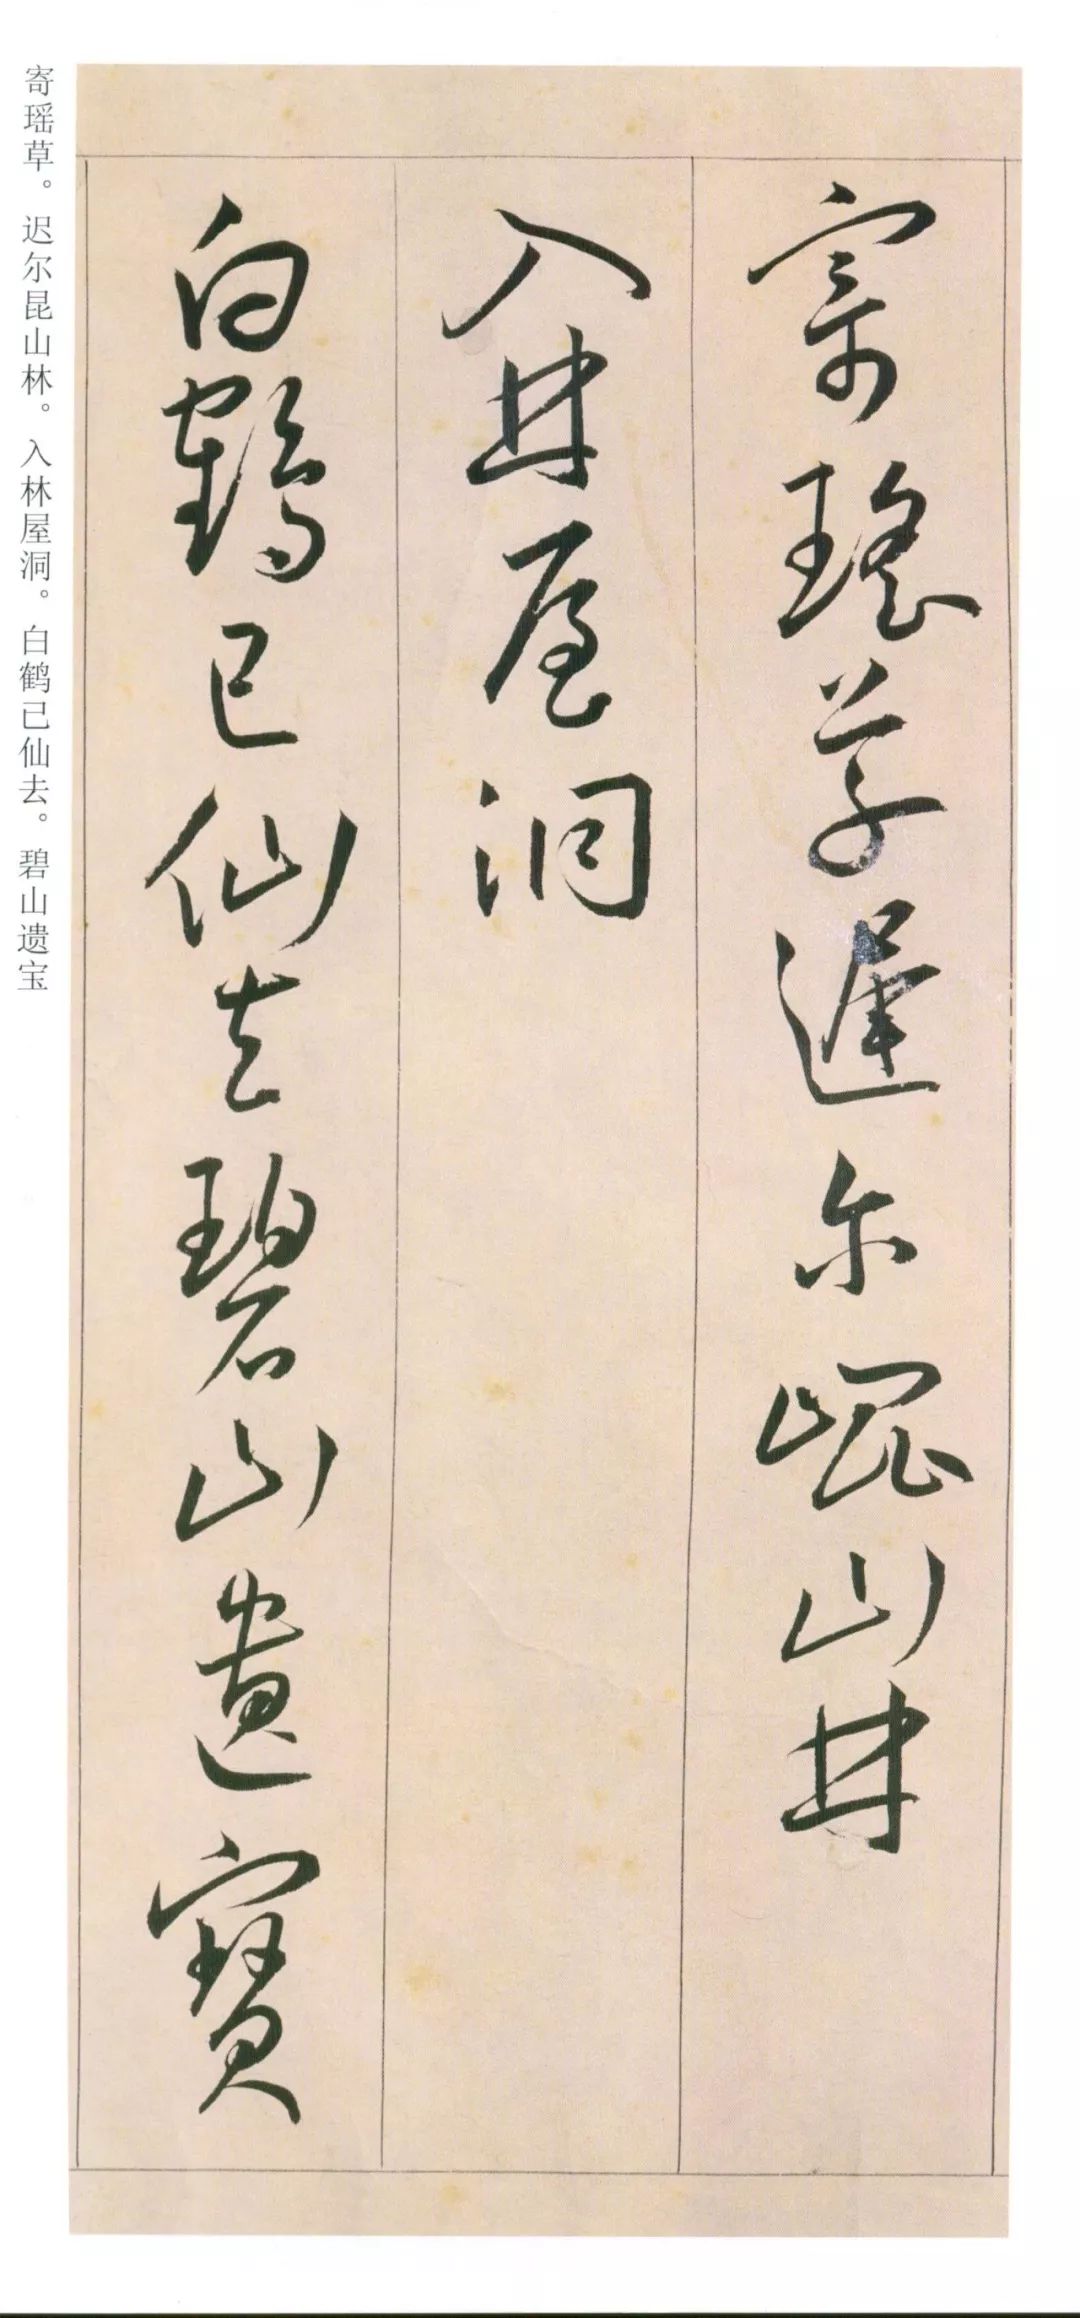 寄瑶草遲尔崐山林
入林屋洞
白鶴已仙去碧山遺寶
寄瑶草。迟尔昆山林。入林屋洞。白鹤已仙去。碧山遗宝